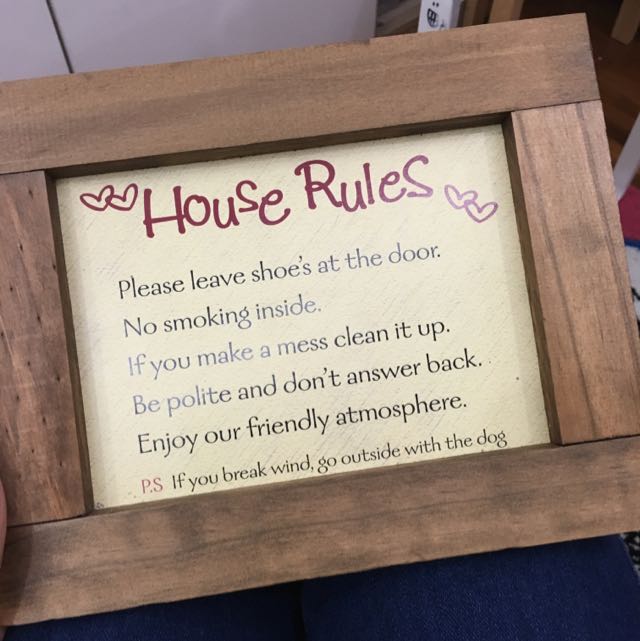 House Rules
Please leave shoe's at the door.
No smoking inside.
If you make a mess clean it up.
Be polite and don't answer back.
Enjoy our friendly atmosphere.
P.S If you break wind, go outside with the dog